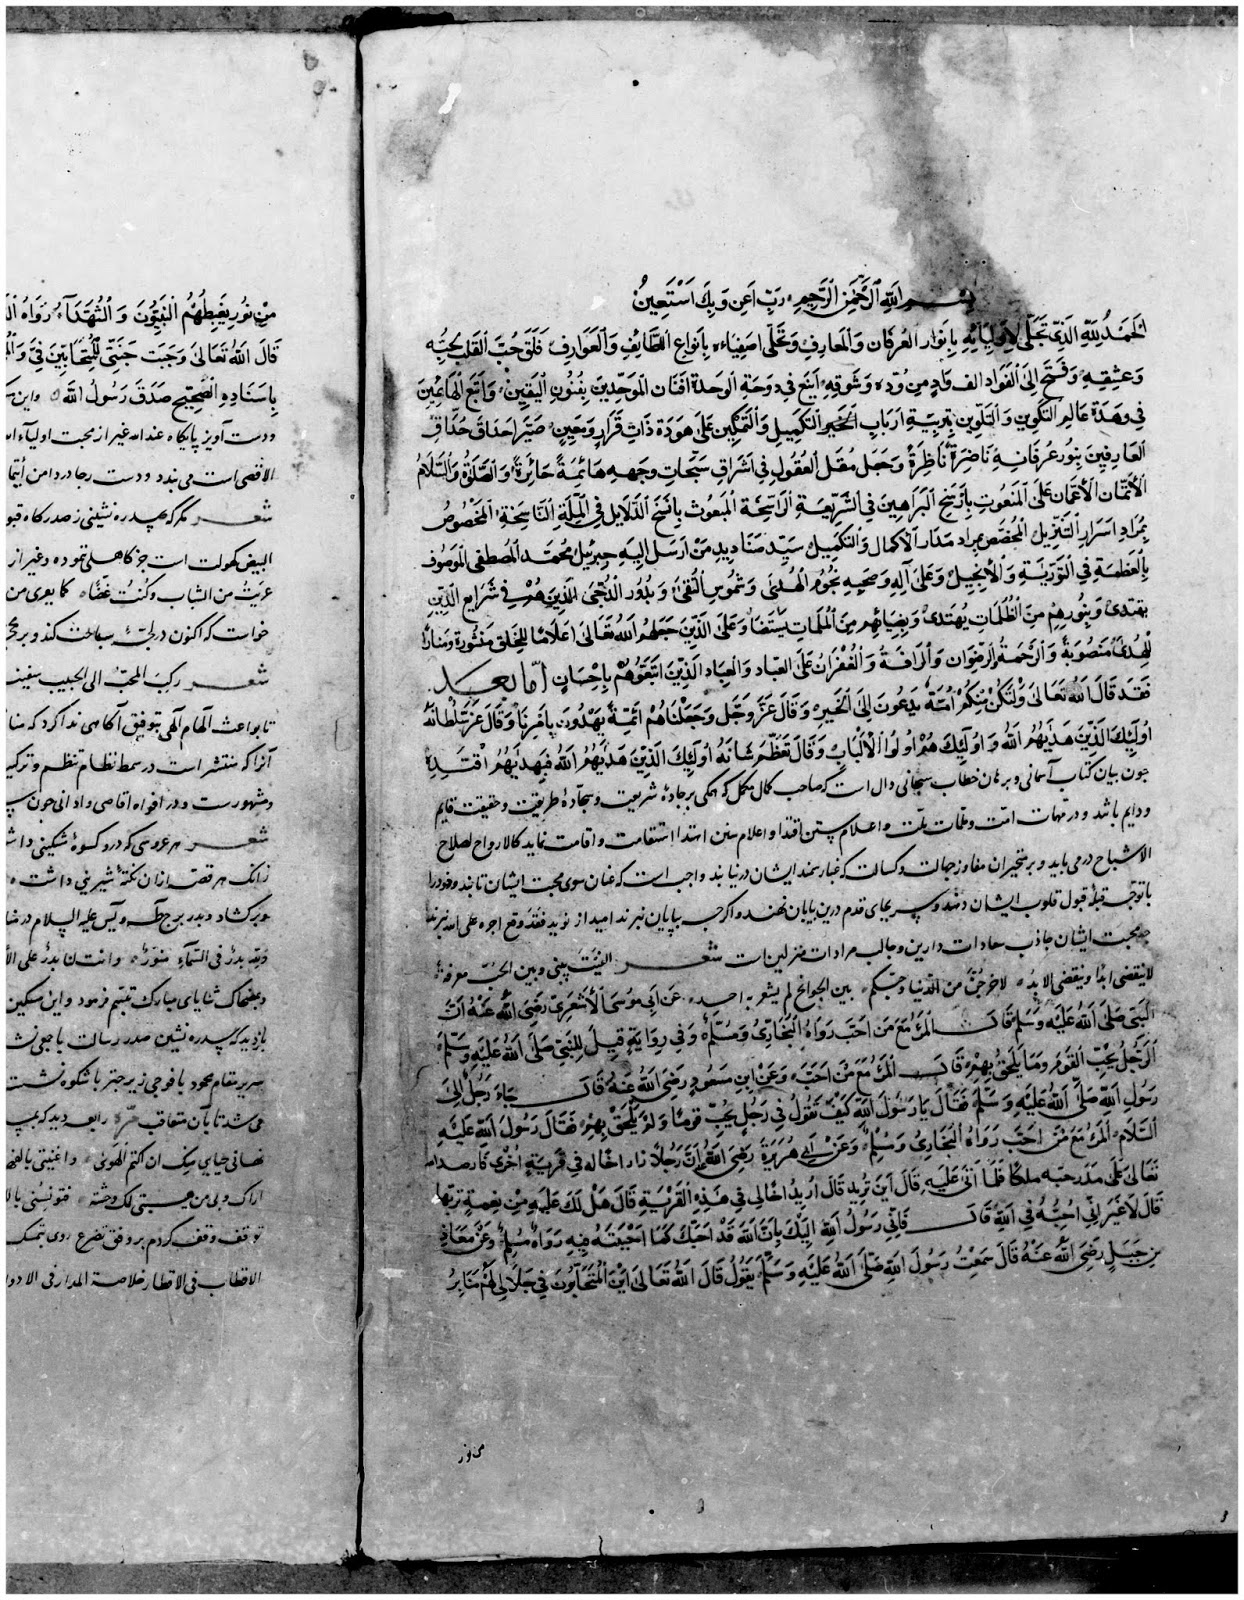 بسم الله الرحمن الرحيم رب اعن وبك استعين
الحمد لله الذى تجلى لاوليائه بانوار العرفان والمعارف وتحلى اصفياءه بانواع اللطائف والعوارف فلق حب القلب بحبه
وعشقه وفتح الى الفواد الف واد من وده وشوقه اينع فى دوحة الوحدة افنان الموحدين بفنون اليقين
فى وهدة عالم التكوين والتلوين بتربية ارباب التكميل والتمكين على هودة ذات قرار ومعين صير احداق حذاق
العارفين بنور عرفانه ناضرة ناظرة وجعل مقل العقول فى اشراق سبحات وجهه هائمة حائرة والصلوة والسلام
الاتمان الاعمان على المنعوت بارسخ البراهين فى الشريعة الراسخة المبعوث بانسخ الدلايل فى الملة الناسخة المخصوص
اسرار التنزيل مدار الاكمال والتكميل سيد صناديد من ارسل اليه جبريل محمد المصطفى الموصوف
بالعظمة فى التورية والانجيل وعلى آله وصحبه نجوم الهدى وشموس التقى وبدور الدجى الذين هم فى شرايع الدين
يهتدى وبنورهم من الظلمات يهتدى وبضيائهم من الملمات يستضا وعلى الذين جعلهم الله تعالى اعلاما للخلق منشورة ومنارا
للهدى منصوبة والرحمة الرضوان والرافة والغفران على العباد والعباد الذين اتبعوهم باحسان اما بعد
فقد قال الله تعالى ولتكن منكم امة يدعون الى الخير وقال عز وجل وجعلناهم ائمة يهدون بامرنا وقال عز سلطانه
اولئك الذين هديهم الله واولئك هم اولوا الالباب وقال تعظم شانه اولئك الذين هديهم الله فبهديهم اقتده
چون بيان كتاب آسمانى وبرهان خطاب سبحانى دال است كه صاحب كمال مكمل كه همگى بر جاده شريعت وسجاده طريقت وحقيقت قايم
ودايم باشد ودر مهمات امت وملمات ملت واعلام سنن اقتدا واعلام سنن اهتدا استقامت واقامت نمايد كالارواح لصلاح
الاشباح درمى بايد وبر متحيران مفاوز جهالت وكسالت كه غبار سمند ايشان درنيابند واجب است كه عنان سوى محبت ايشان تابند وخود را
با توجه قبله قبول قلوب ايشان دهند وبسر بجاى قدم درين بيابان نهند واگرچه بپايان نبرند اميد از نويد فقد وقع اجره على الله نبرند
چه محبت ايشان جاذب سعادات دارين وجالب مرادات منزلين است شعر الفيت بينى وبين الحب معرفة
لا ينقضى ابدا وينقضى الابد لاخرجن من الدنيا وحبكم بين الجوانح لم يشعر به احد عن ابى موسى الاشعرى رضى الله عنه ان
النبى صلى الله عليه وسلم قال المرء مع من احب رواه البخارى ومسلم وفى رواية قيل للنبى صلى الله عليه وسلم
الرجل يحب القوم وما يلحق بهم قال المرء مع من احب وعن ابن مسعود رضى الله عنه قال جاء رجل الى
رسول الله صلى الله عليه وسلم فقال يا رسول الله كيف تقول فى رجل يحب قوما ولم يلحق بهم فقال رسول الله عليه
السلام المرء مع من احب رواه البخارى ومسلم وعن ابى هريرة رضى الله ان رجلا زار اخا له فى قرية اخرى فارصد الله
تعالى على مدرجته ملكا فلما اتى عليه قال اين تريد قال اريد اخا لى فى هذه القرية قال هل لك عليه من نعمة تربها
قال لا غير انى احبه فى الله قال فانى رسول الله اليك بان الله قد احبك كما احببته فيه رواه مسلم وعن معاذ
بن جبل رضى الله عنه قال سمعت رسول الله صلى الله عليه وسلم يقول قال الله تعالى اين المتحابون فى جلالى لهم منابر
من نور
من نور يغبطهم النبيون والشهداء رواه
قال الله تعالى وجبت جنتى للمتحابين فى
باسناده الصحيح صدق رسول الله واين
ودست آويز پايگاه عند الله غير از محبت اولياء
الاقصى است مى بندد ودست رجا در دامن
شعر مگر كه بدره نشينى ز صدرگاه
البيض كهولت است جز كاهلى نموده وغير از
عريت من الشباب وكنت غضا كما يعرى من
خواست كه اكنون در لجه سباحت كند وبر
شعر ركب المحب الى الحبيب سفينة
تا بواعث الهام الهى بتوفيق آگاهى ندا كرد كه
آنرا كه منتشر است در سمط نظام تنظم
ومشهورست ودر افواه اقاصى وادانى چون
شعر هر عروسى كه در كسوه
زانك هر قصه از ان نكته شيرينى داشت
وبدر برج طه ويس عليه السلام
بدر فى السماء منوره وانت لنا بدر على
وبضحاك ثناياى مبارك تبسم فرمود واين مسكين
بدره نشين صدر رسالت
سرير مقام محمود با فوجى زير چتر با شكوه نشست
مى شد تا بآن متعاقب رابع ديد كه
نهانى حيايى منك ان اكتم الهوى واغنيتى
اراك وبى من هيبتى لك وحشة فتونسنى
توقف وقف كردم بر وفق تضرع روى
الاقطاب فى الاقطار خلاصة المدار فى